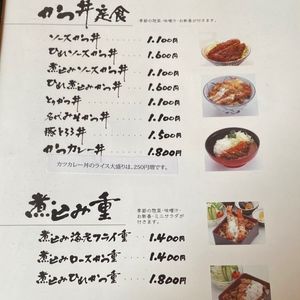 かつ丼定食
季節の惣菜・味噌汁・お新香が付きます。
ソースかつ丼 1.100円
ひれソースかつ丼 1.600円
煮込みかつ丼 1.100円
ひれ煮込みかつ丼 1.600円
とりかつ丼 1.100円
名代みそかつ丼 1.100円
豚とろろ丼 1.500円
かつカレー丼 1.800円
カツカレー丼のライス大盛りは、250円増です。
煮込み重
季節の惣菜・味噌汁・
お新香・ミニサラダが
付きます。
煮込み海老フライ重 1.400円
煮込みロースかつ重 1.400円
煮込みひれかつ重 1.800円